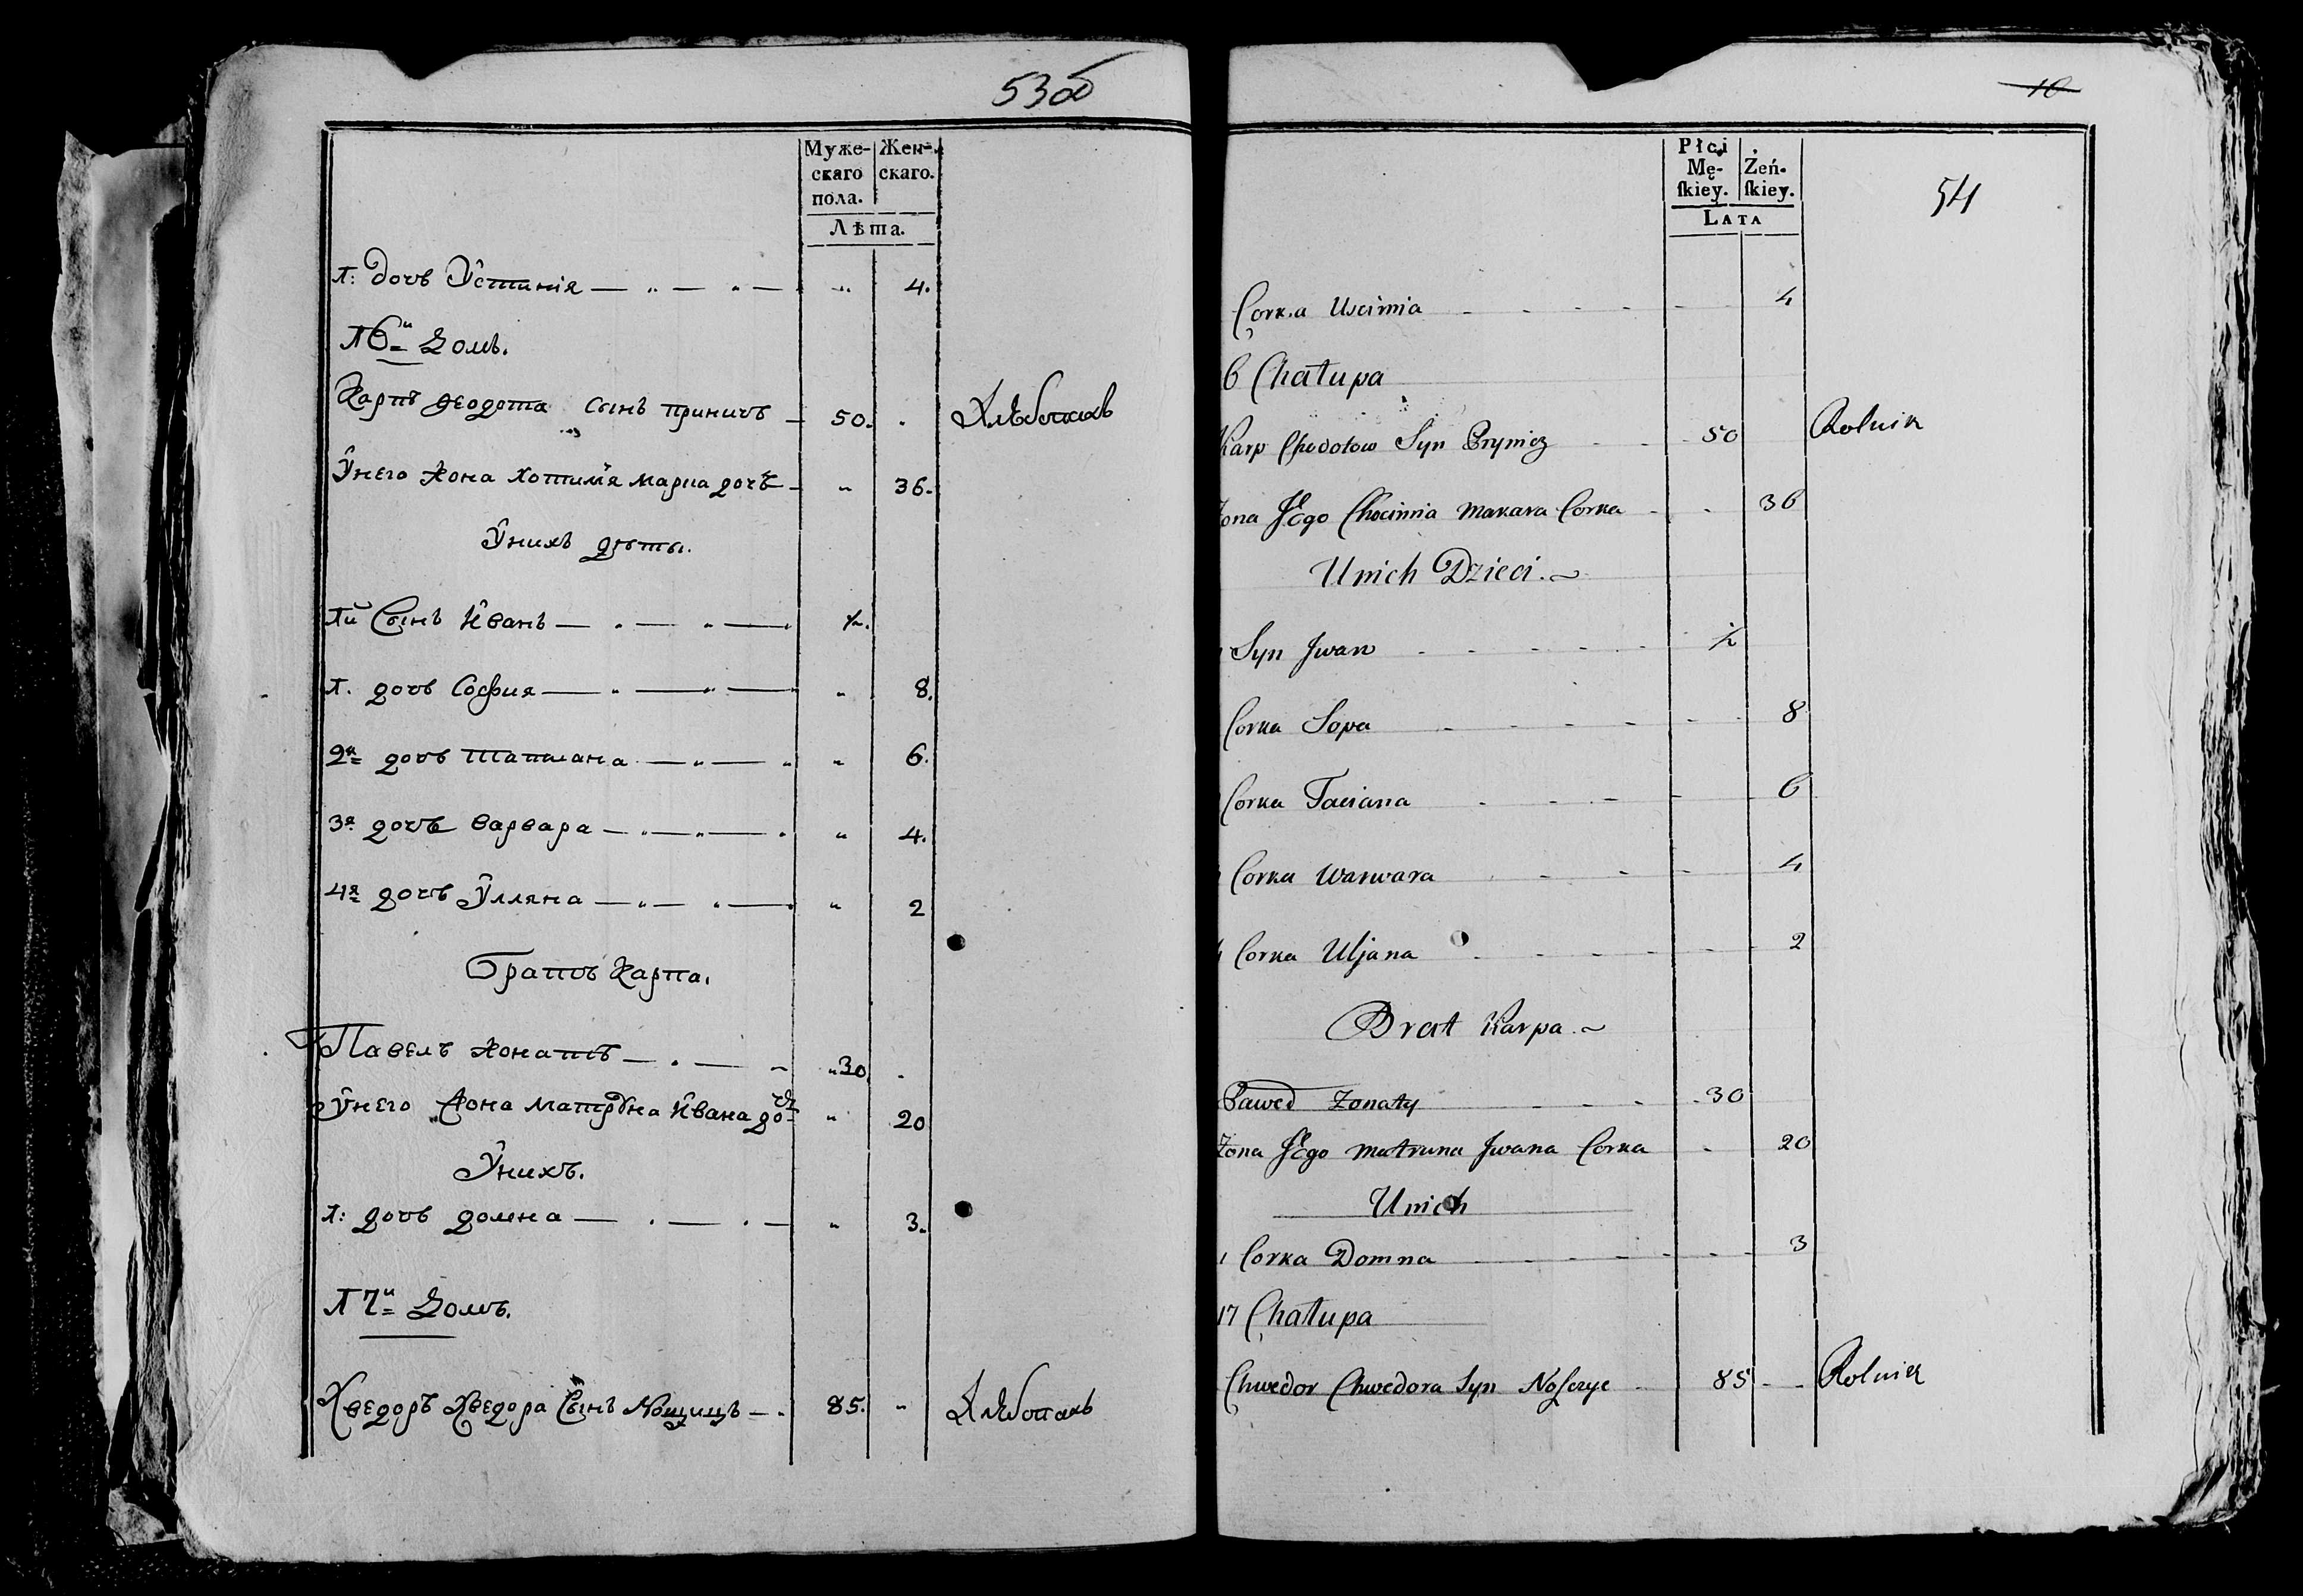 53об
Муже-
скаго
пола.
Жен-
скаго.
Лѣта.
1: дочь Устинія — „ — „ — „ 4.
16й Домъ.
Карпъ Феодота сынъ Приничъ — 50. Хлѣбопашъ
У него жона Хотимія дочь — „ 36.
У нихъ дѣты.
1й Сынъ Иванъ — „ — „ — ½.
1. дочь София — „ — „ — „ 8.
2я дочь Татиана — „ — „ „ 6.
3я дочь Варвара — „ — „ — „ 4.
4я дочь Улляна — „ — „ — „ 2
Братъ Карпа.
Павелъ жонатъ — „ — „ 30
У него Жона Матруна Ивана дочь „ 20
У нихъ.
1: дочь Домна — . — . — „ 3.
17й Домъ.
Хведоръ Хведора Сынъ Нощицъ — 85. „ Хлѣбопашъ
10
54
Płci
Mę-
ſkiey.
Żeń-
ſkiey.
LATA
Corka Uscimia 4
6 Chałupa
Karp Chodotow Syn Prynicz 50 Rolnik
Żona Jego Chocimia Makara Corka 36
Unich Dzieci.
Syn Jwan ½
Corka Sopa 8
Corka Taciana 6
Corka Warwara 4
Corka Uljana 2
Brat Karpa.
Paweł Żonaty 30
Żona Jego Matruna Jwana Corka 20
Unich
1 Corka Domna 3
17 Chałupa
Chwedor Chwedora Syn Noſczyc 85 Rolnik